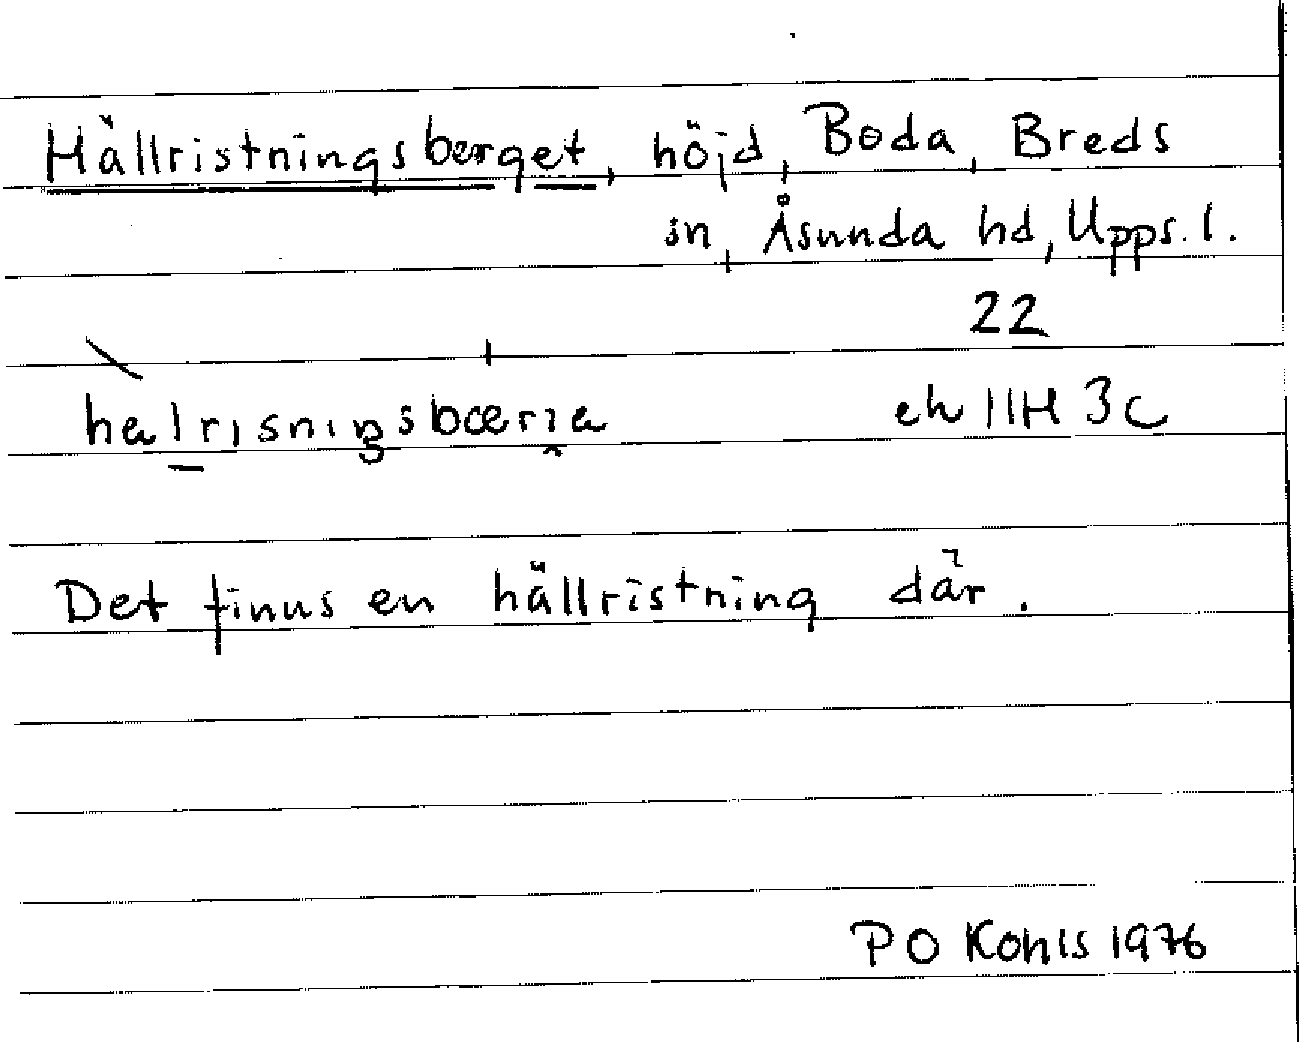 Hällristningsberget, höjd, Boda, Breds
sn, Åsunda hd, Upps. l.
22
ek 11H 3c
Det finns en hällristning där.
PO Kohls 1976